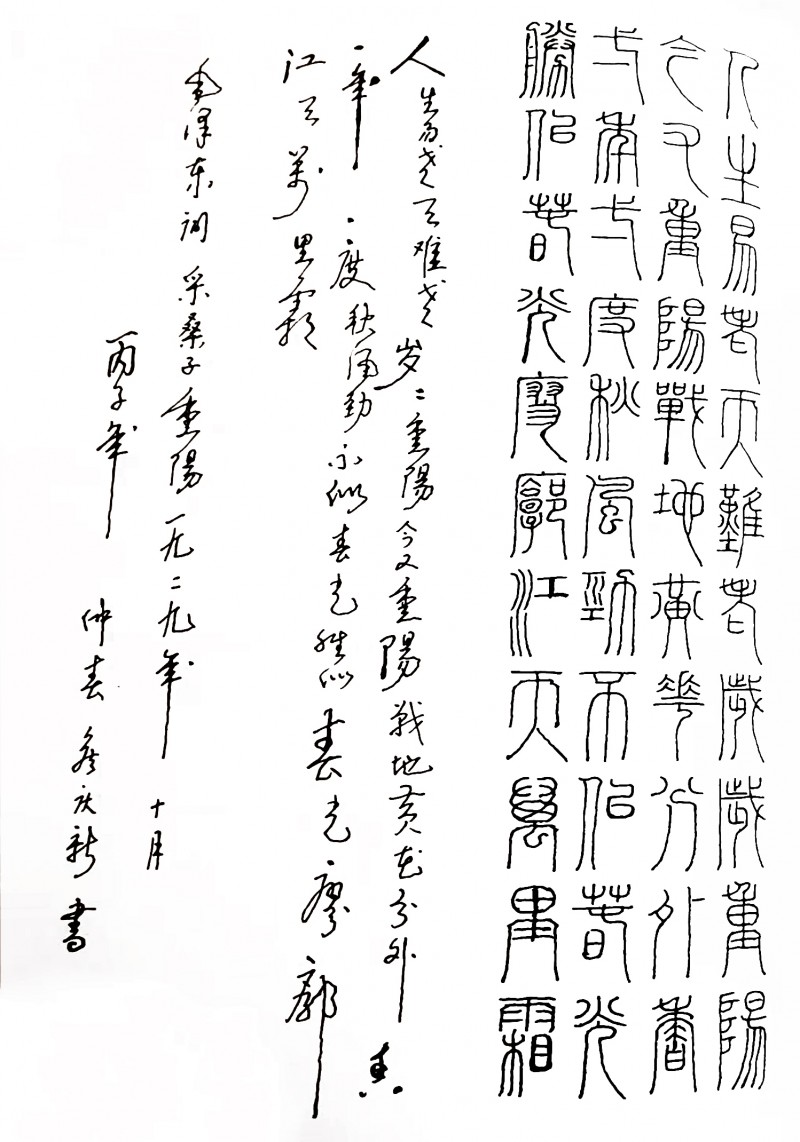 人生易老天難老歲歲重陽
今又重陽戰地黃花分外香
弌年弌度秋風勁不似春光
勝似春光寥廓江天萬里霜
人生易老天难老岁〻重陽今又重陽战地黄花分外香
一年一度秋风劲不似春光胜似春光寥廓
江天萬里霜
毛泽东词采桑子重陽一九二九年十月
丙子年仲春詹庆新書